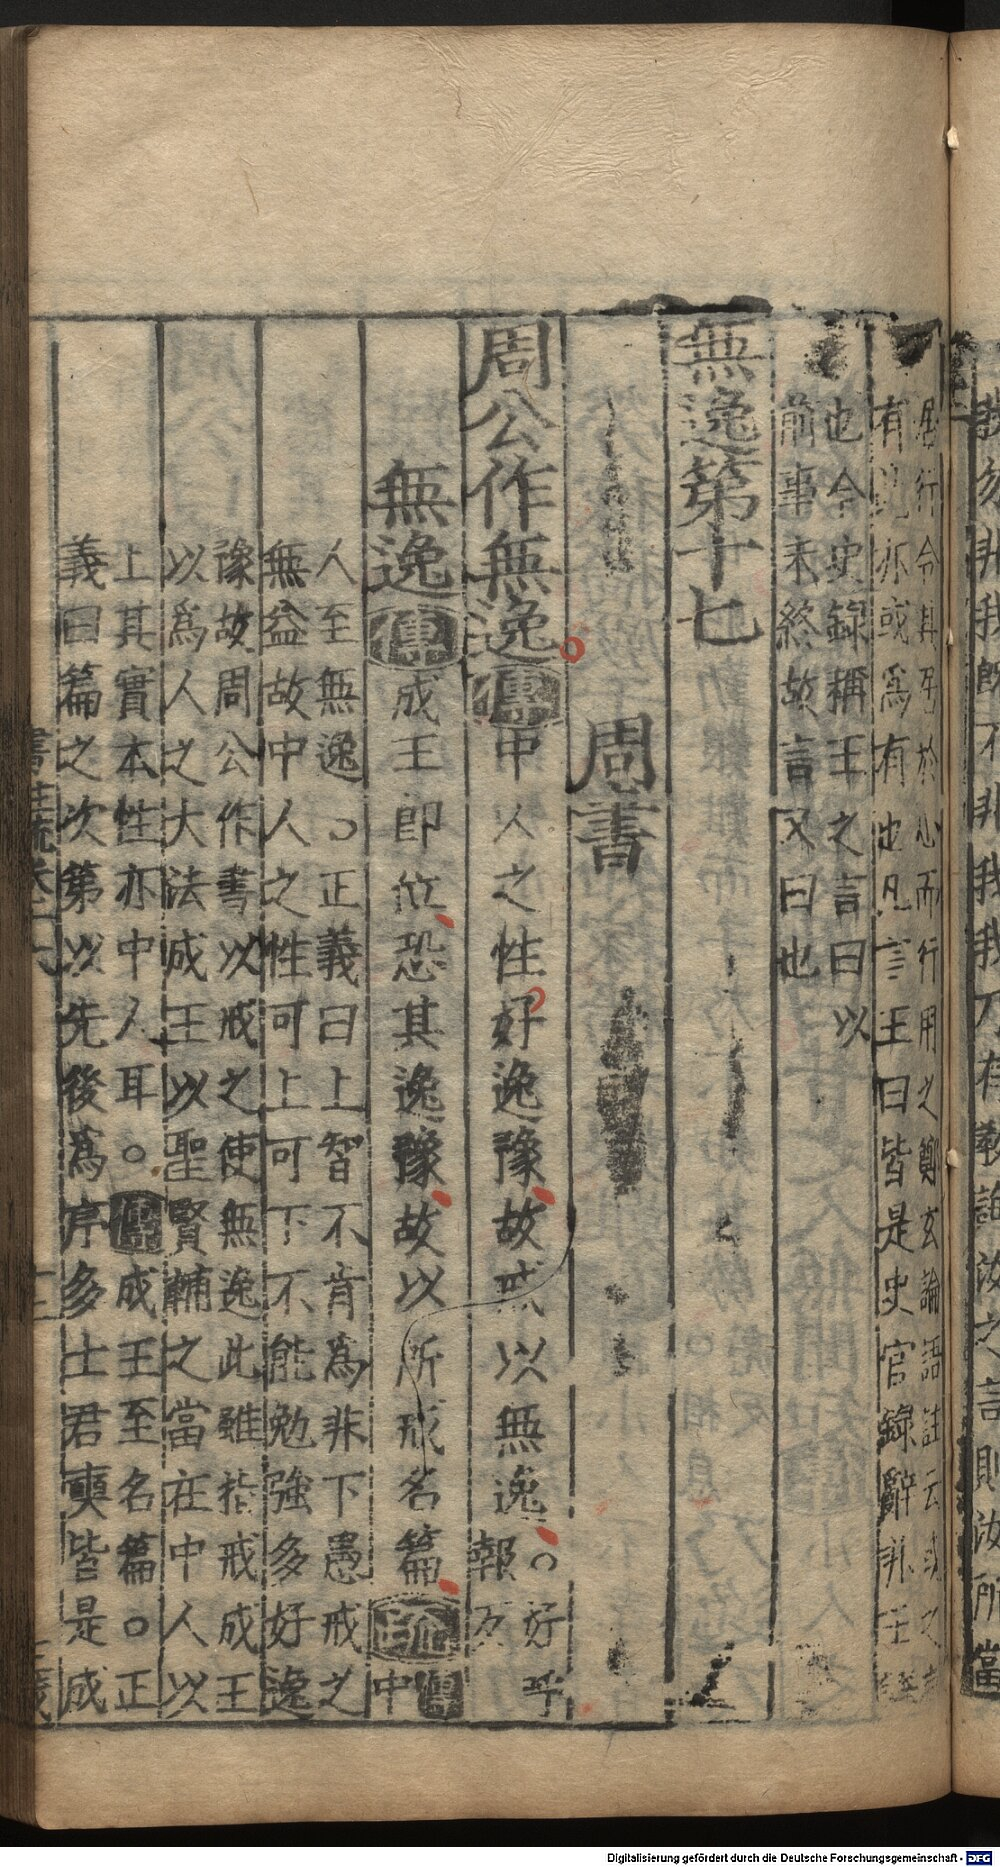 我勿非我既不非我我乃有教誨汝之言則汝所當
居行令其居於心而行用之鄭玄論語註云或之言
有此亦或為有也凡言王曰皆是史官錄辭非王
也今史錄稱王之言曰以
前事未終故言又曰也
無逸第十七
周書
周公作無逸傳中人之性好逸豫故戒以無逸○好呼
報反
無逸傳成王即位恐其逸豫故以所戒名篇疏傳中
人至無逸○正義曰上智不肯為非下愚戒之
無益故中人之性可上可下不能勉強多好逸
豫故周公作書以戒之使無逸此雖指戒成王
以為人之大法成王以聖賢輔之當在中人以
上其實本性亦中人耳○傳成王至名篇○正
義曰篇之次第以先後為序多士君奭皆是成
書註疏卷十六
十三
Digitalisierung gefördert durch die Deutsche Forschungsgemeinschaft - DFG